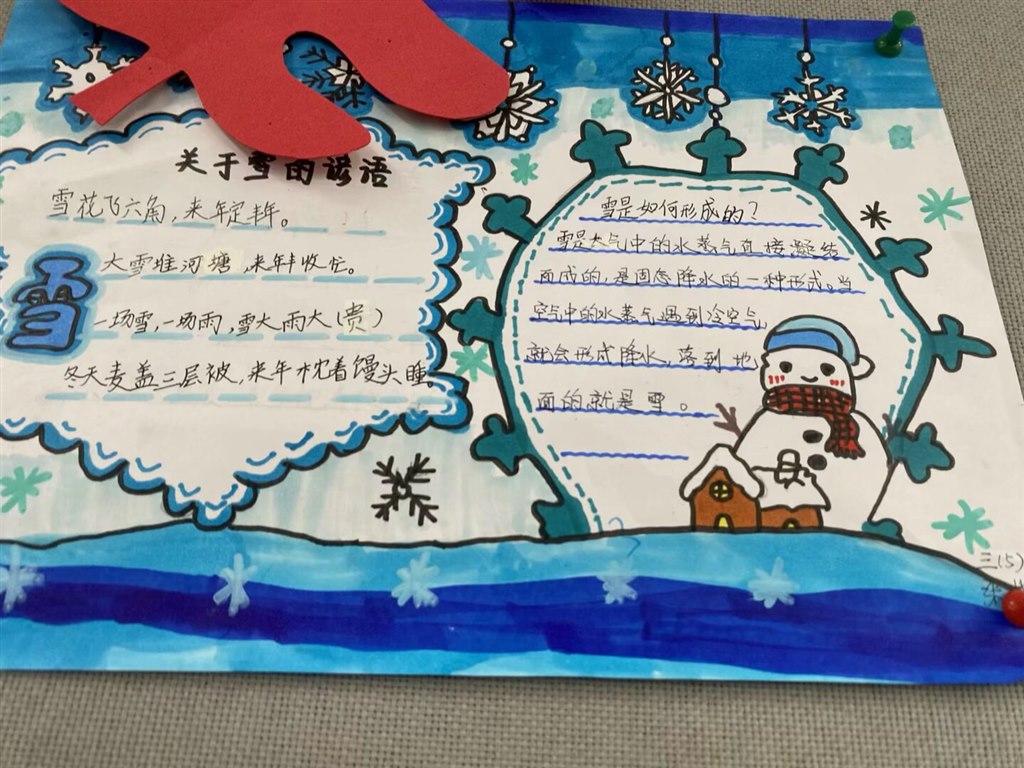 关于雪的谚语
雪花飞六角，来年定丰年。
大雪堆河塘，来年丰收忙。
雪
一场雪，一场雨，雪大雨大（贵）
冬天麦盖三层被，来年枕着馒头睡。
雪是如何形成的？
雪是大气中的水蒸气直接凝结
而成的，是固态降水的一种形式。当
空气中的水蒸气遇到冷空气
就会形成降水，落到地
面的就是雪。
三(5)